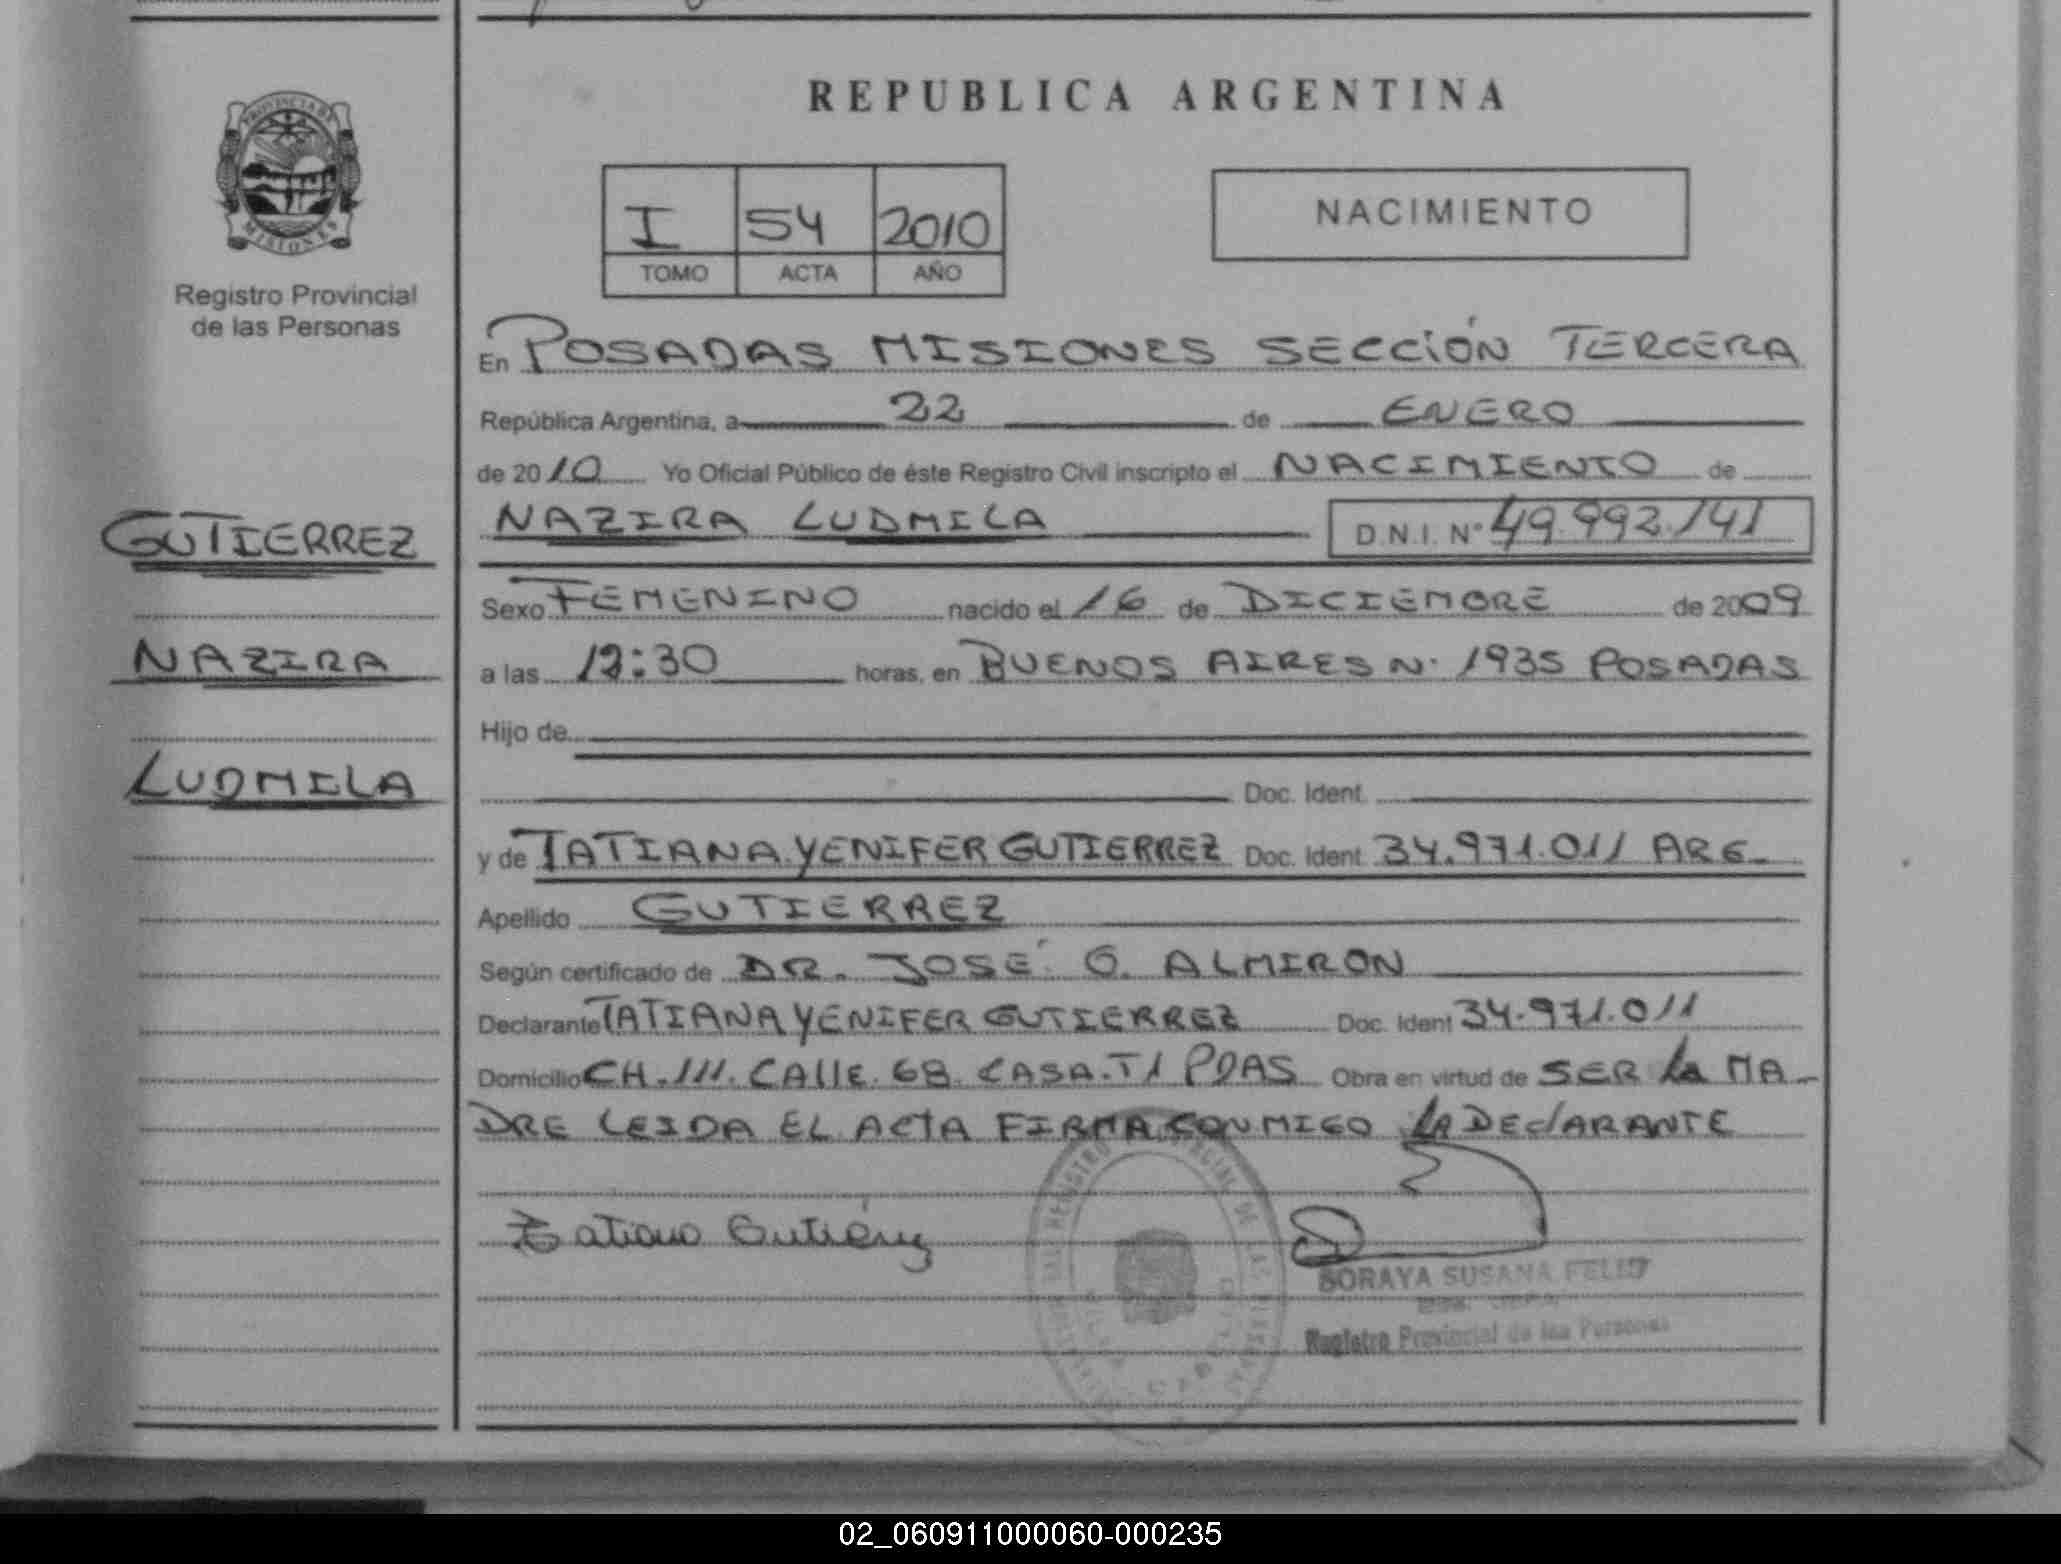 REPUBLICA ARGENTINA
PROVINCIA DE
MISIONES
Registro Provincial
de las Personas
I 54 2010
TOMO ACTA AÑO
NACIMIENTO
En POSADAS MISIONES SECCIÓN TERCERA
República Argentina, a 22 de ENERO
de 2010 Yo Oficial Público de éste Registro Civil inscripto el NACIMIENTO de
NAZIRA LUDMILA D.N.I. Nº 49.992.141
GUTIERREZ
NAZIRA
LUDMILA
Sexo FEMENINO nacido el 16 de DICIEMBRE de 2009
a las :30 horas, en BUENOS AIRES N· 1935 POSADAS
Hijo de
Doc. Ident.
y de TATIANA YENIFER GUTIERREZ Doc. Ident. 34.971.011 ARG.
Apellido GUTIERREZ
Según certificado de DR. JOSÉ O. ALMIRON
Declarante TATIANA YENIFER GUTIERREZ Doc. Ident 34.971.011
Domicilio CH. 111. CALLE. 68. CASA. T1 PDAS Obra en virtud de SER La MA-
DRE LEIDA EL ACTA FIRMA CONMIGO LA DEClARANTE
Tatiana Gutiérrez
SORAYA SUSANA
Registro Provincial de las Personas
02_060911000060-000235